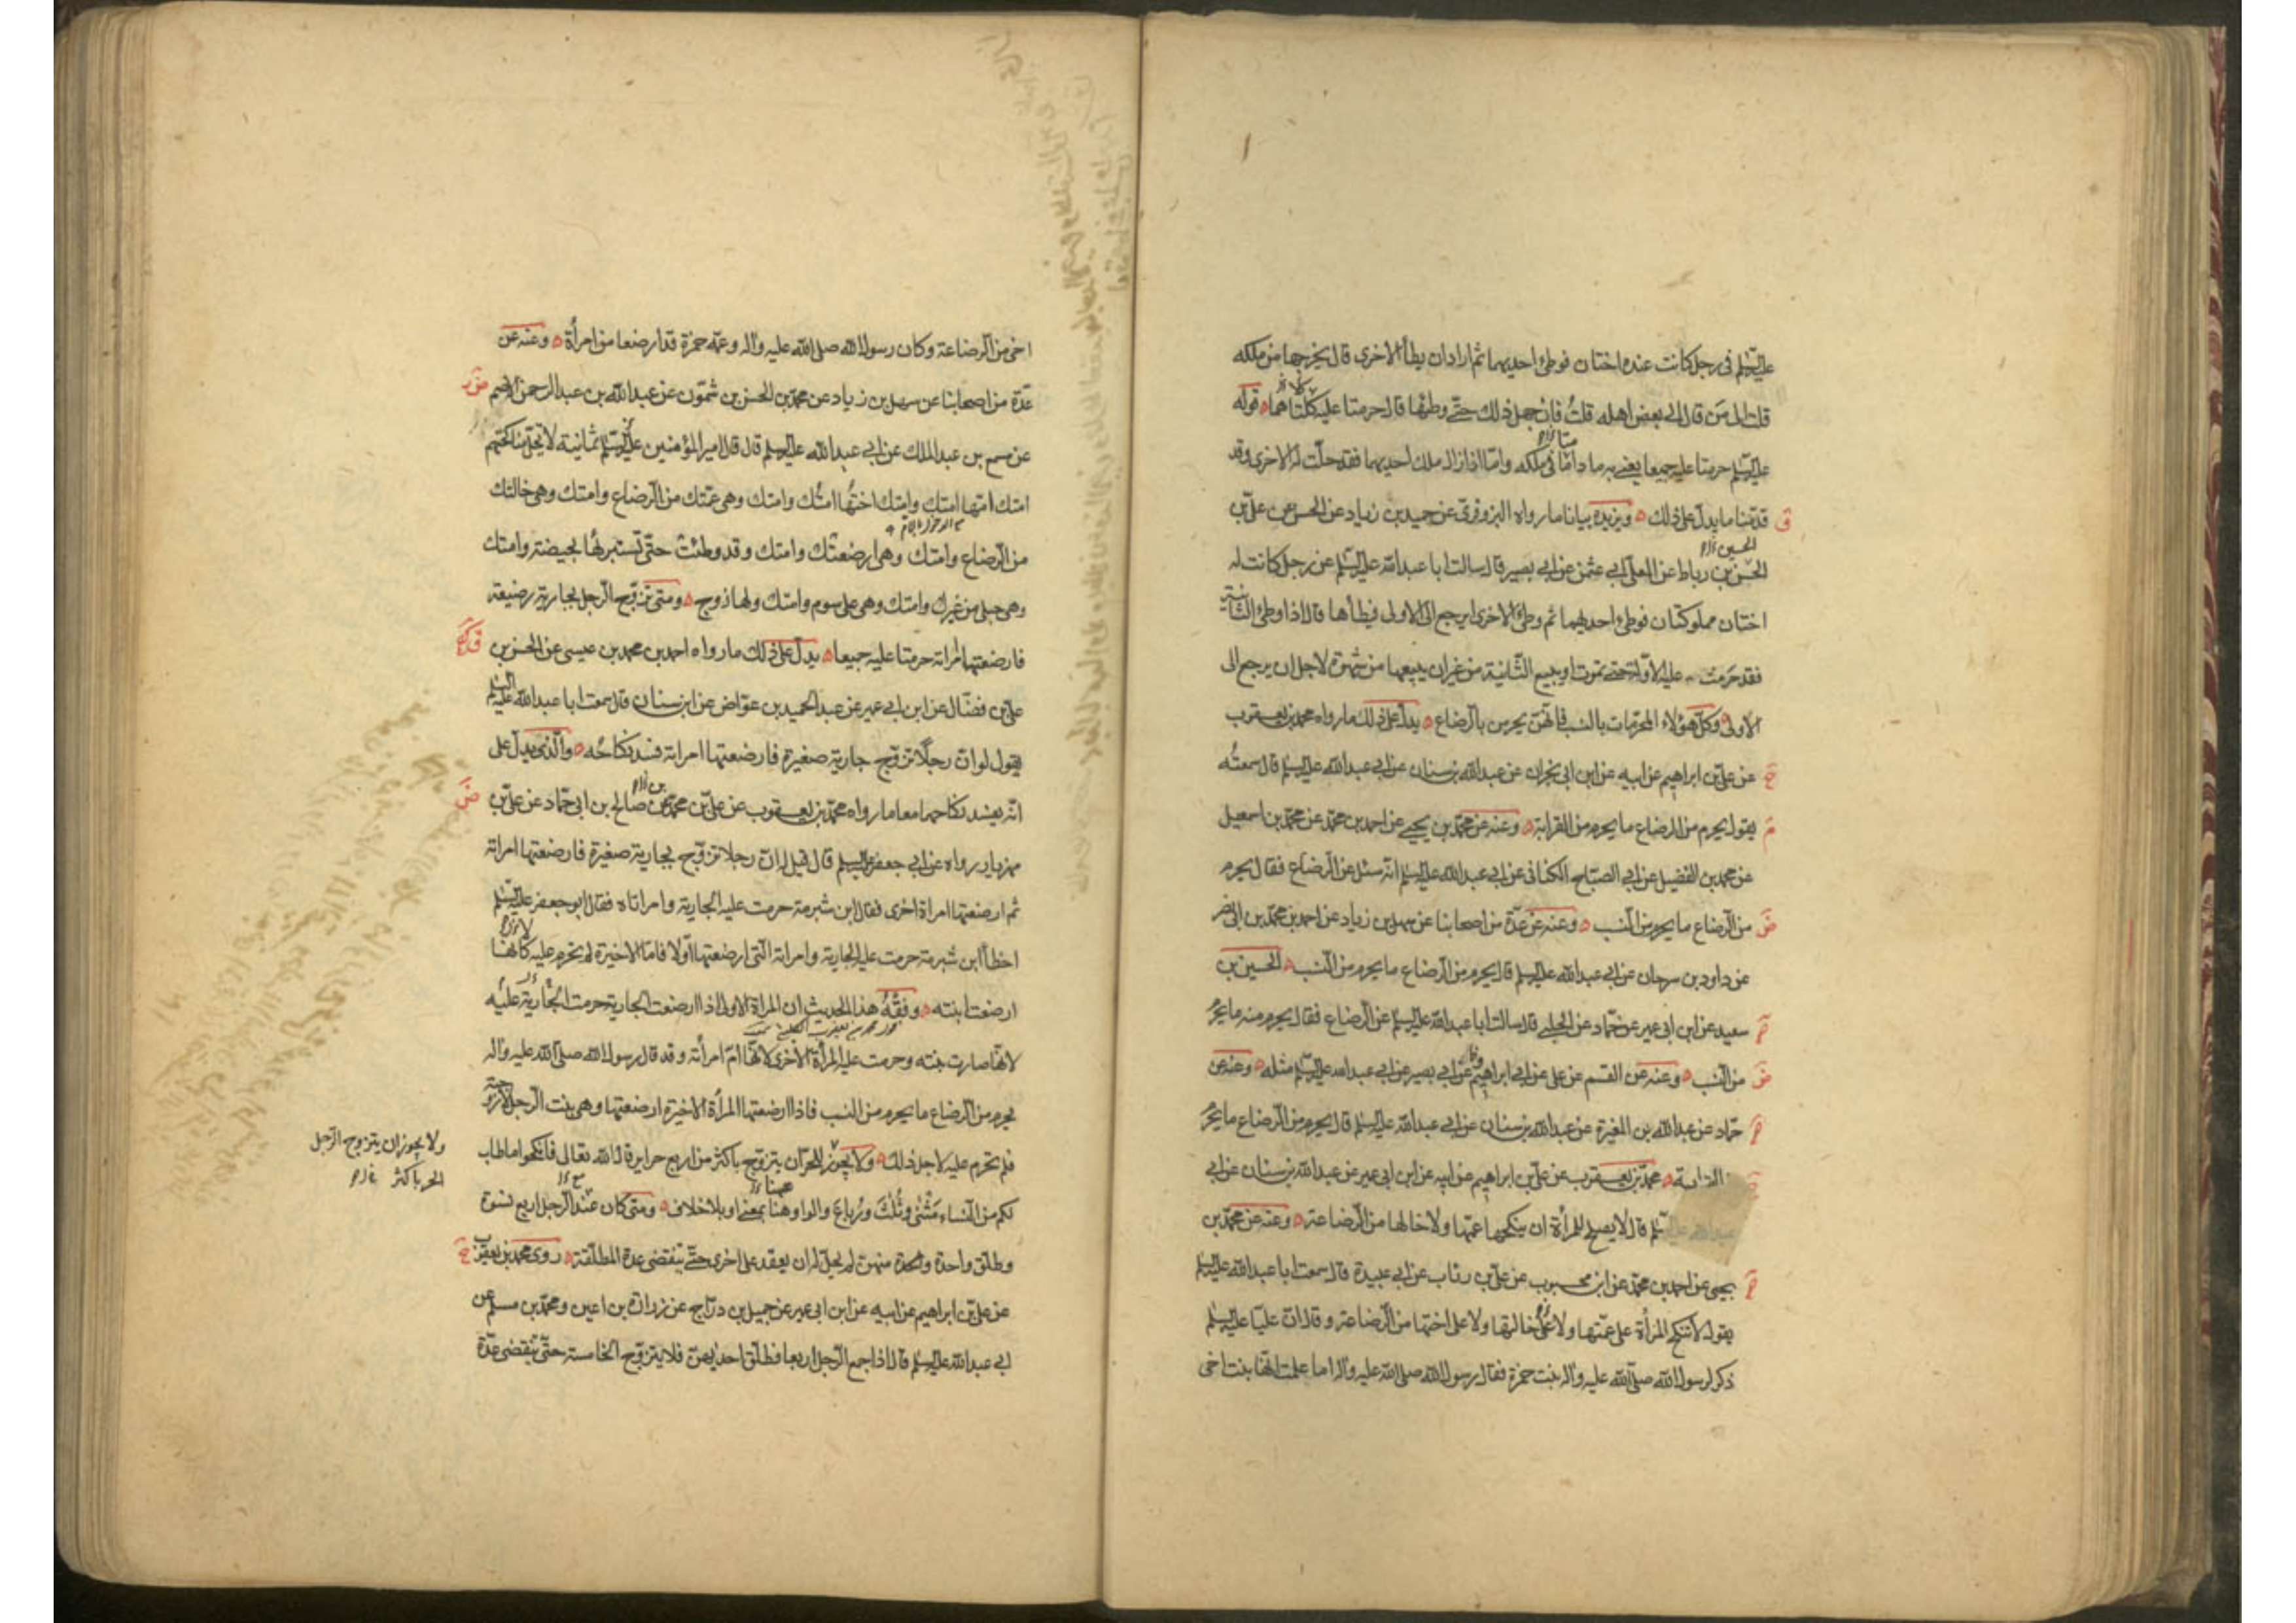 عليه السلم في رجل كانت عنده اختان فوطئ احديهما ثم اراد ان يطأ الاخرى قال يخرجها من ملكه
قلت الى من قال الى بعض اهله قلت فان جهل ذلك حتى وطئها قال حرمتا عليه كلتاهما قوله
عليه السلم حرمتا عليه جميعا يعني به ما داما في ملكه واما اذا زال ملك احديهما فقد حلت له الاخرى وقد
قدمنا ما يدل على ذلك ويزيده بيانا ما رواه البزوفرى عن حميد بن زياد عن الحسن عن علي بن
الحسن بن رباط عن المعلى ابي عثمن عن ابي بصير قال سالت ابا عبد الله عليه السلم عن رجل كانت له
اختان مملوكتان فوطئ احديهما ثم وطئ الاخرى ايرجع الى الاولى فيطأها قال اذا وطئ الثانية
فقد حرمت عليه الاولة حتى تموت او يبيع الثانية من غير ان يبيعها من شهوة لاجل ان يرجع الى
الاولى وكل هؤلاء المحرمات بالنسب فانهن يحرمن بالرضاع يدل على ذلك ما رواه محمد بن يعقوب
عن علي بن ابراهيم عن ابيه عن ابن ابي نجران عن عبد الله بن سنان عن ابي عبد الله عليه السلم قال سمعته
يقول يحرم من الرضاع ما يحرم من القرابة وعنه عن محمد بن يحيى عن احمد بن محمد عن محمد بن اسمعيل
عن محمد بن الفضيل عن ابي الصباح الكناني عن ابي عبد الله عليه السلم انه سئل عن الرضاع فقال يحرم
من الرضاع ما يحرم من النسب وعنه عن عدة من اصحابنا عن سهل بن زياد عن احمد بن محمد بن ابي نصر
عن داود بن سرحان عن ابي عبد الله عليه السلم قال يحرم من الرضاع ما يحرم من النسب الحسين بن
سعيد عن ابن ابي عمير عن حماد عن الحلبي قال سالت ابا عبد الله عليه السلم عن الرضاع فقال يحرم منه ما يحرم
من النسب وعنه عن القسم عن علي عن ابي ابراهيم وعن ابي بصير عن ابي عبد الله عليه السلم مثله وعنه عن
حماد عن عبد الله بن المغيرة عن عبد الله بن سنان عن ابي عبد الله عليه السلم قال يحرم من الرضاع ما يحرم
القرابة محمد بن يعقوب عن علي بن ابراهيم عن ابيه عن ابن ابي عمير عن عبد الله بن سنان عن ابي
عبد الله عليه السلم قال لا يصلح للمرأة ان ينكحها عمها ولا خالها من الرضاعة وعنه عن محمد بن
يحيى عن احمد بن محمد عن ابن محبوب عن علي بن رئاب عن ابي عبيدة قال سمعت ابا عبد الله عليه السلم
يقول لا تنكح المرأة على عمتها ولا على خالتها ولا على اختها من الرضاعة وقال ان عليا عليه السلم
ذكر لرسول الله صلى الله عليه واله بنت حمزة فقال رسول الله صلى الله عليه واله اما علمت انها بنت اخى
اخى من الرضاعة وكان رسول الله صلى الله عليه واله وعمه حمزة قد ارضعا من امرأة وعنه عن
عدة من اصحابنا عن سهل بن زياد عن محمد بن الحسن بن شمون عن عبد الله بن عبد الرحمن الاصم
عن مسمع بن عبد الملك عن ابي عبد الله عليه السلم قال قال امير المؤمنين عليه السلم ثمانية لا تحل مناكحتهم
امتك امها امتك وامتك اختها امتك وامتك وهي عمتك من الرضاع وامتك وهي خالتك
من الرضاع وامتك وهي ارضعتك وامتك وقد وطئت حتى تستبرئها بحيضة وامتك
وهي حبلى من غيرك وامتك وهي على سوم وامتك ولها زوج ومتى تزوج الرجل بجارية رضيعة
فارضعتها امراته حرمتا عليه جميعا يدل على ذلك ما رواه احمد بن محمد بن عيسى عن الحسن بن
علي بن فضال عن ابن ابي عمير عن عبد الحميد بن عواض عن ابن سنان قال سمعت ابا عبد الله عليه السلم
يقول لو ان رجلا تزوج جارية صغيرة فارضعتها امراته فسد نكاحه والذي يدل على
انه يفسد نكاحهما معا ما رواه محمد بن يعقوب عن علي بن محمد عن صالح بن ابي حماد عن علي بن
مهزيار رواه عن ابي جعفر عليه السلم قال قيل له ان رجلا تزوج بجارية صغيرة فارضعتها امراته
ثم ارضعتها امراة اخرى فقال ابن شبرمة حرمت عليه الجارية وامراتاه فقال ابو جعفر عليه السلم
اخطأ ابن شبرمة حرمت عليه الجارية وامراته التي ارضعتها اولا فاما الاخيرة لم تحرم عليه كانها
ارضعت ابنته وفقه هذا الحديث ان المراة الاولى اذا ارضعت الجارية حرمت الجارية عليه
لانها صارت بنته وحرمت عليه المرأة الاخرى لانها ام امرأته وقد قال رسول الله صلى الله عليه واله
يحرم من الرضاع ما يحرم من النسب فاذا ارضعتها المرأة الاخيرة ارضعتها وهي بنت الرجل لا زوجته
فلم تحرم عليه لاجل ذلك ولا يجوز للحر ان يتزوج باكثر من اربع حراير قال الله تعالى فانكحوا ما طاب
ولا يجوز ان يتزوج الرجل
الحر باكثر
لكم من النساء مثنى وثلث ورباع والواو هنا بمعنى او بلا خلاف ومتى كان عند الرجل اربع نسوة
وطلق واحدة واحدة منهن لم يحل له ان يعقد على اخرى حتى تنقضي عدة المطلقة روى محمد بن يعقوب
عن علي بن ابراهيم عن ابيه عن ابن ابي عمير عن جميل بن دراج عن زرارة بن اعين ومحمد بن مسلم عن
ابي عبد الله عليه السلم قال اذا جمع الرجل اربعا فطلق احديهن فلا يتزوج الخامسة حتى تنقضي عدة